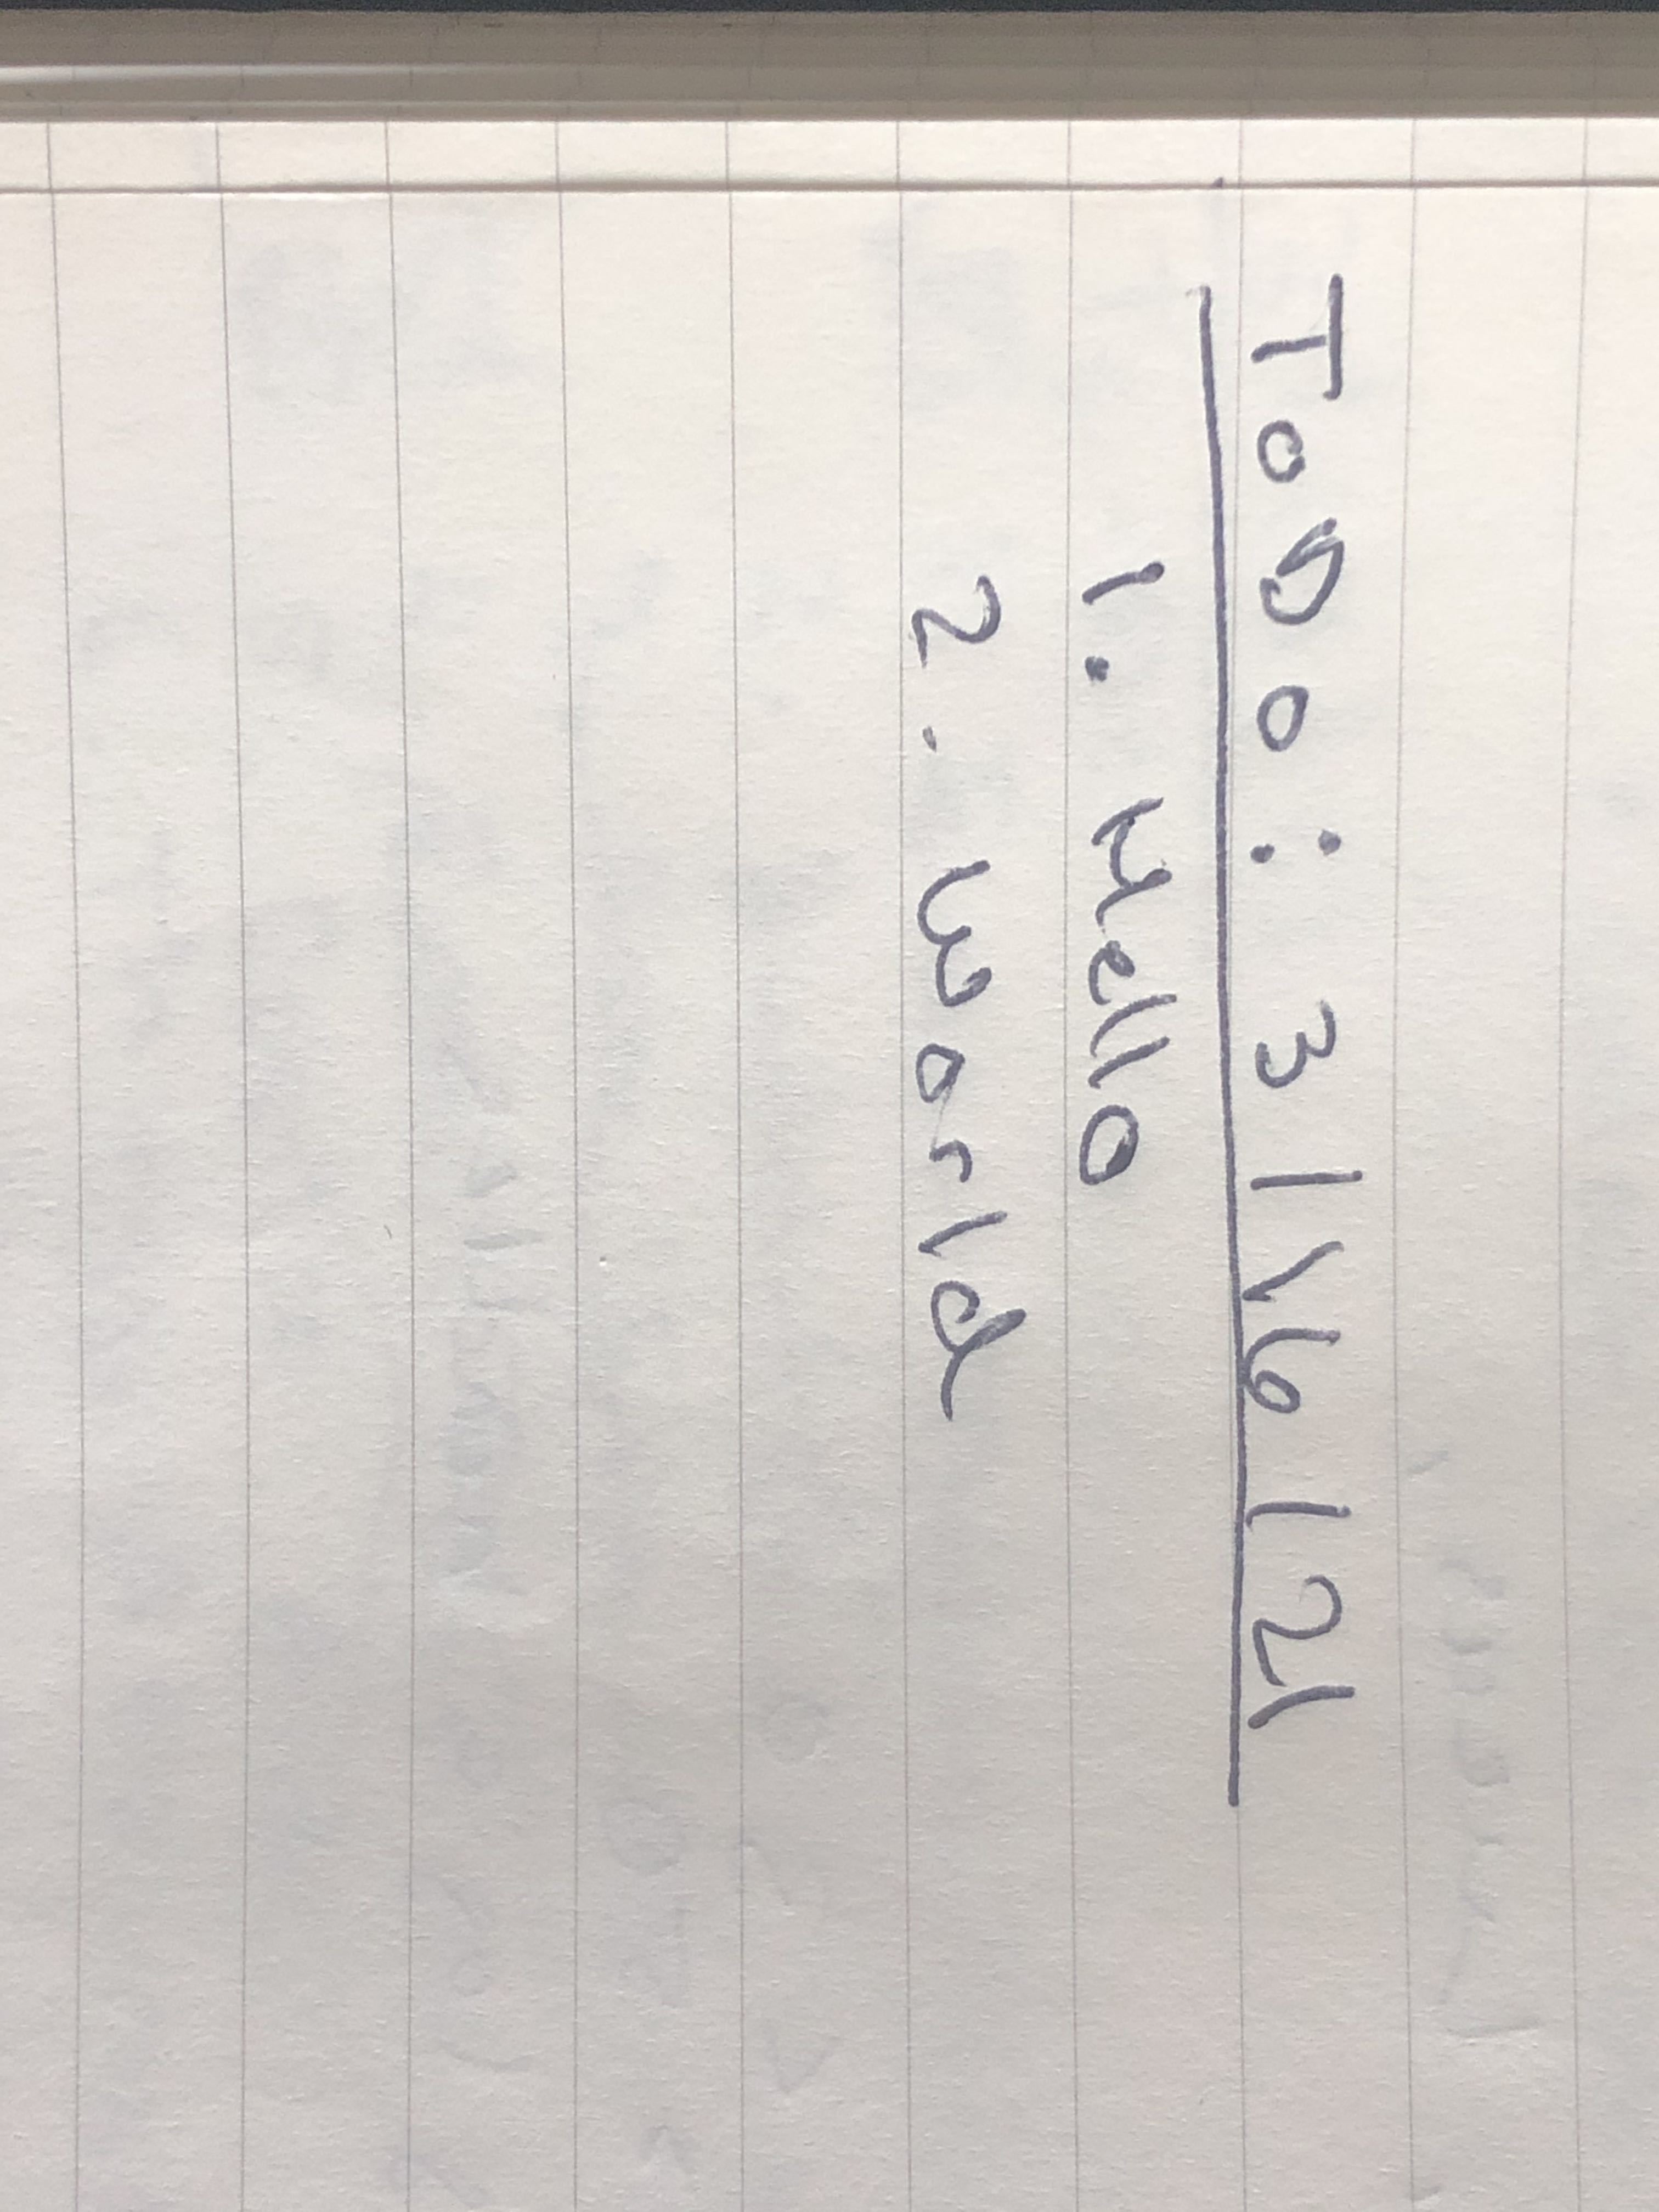 ToDo: 3/16/21
1. Hello
2. World